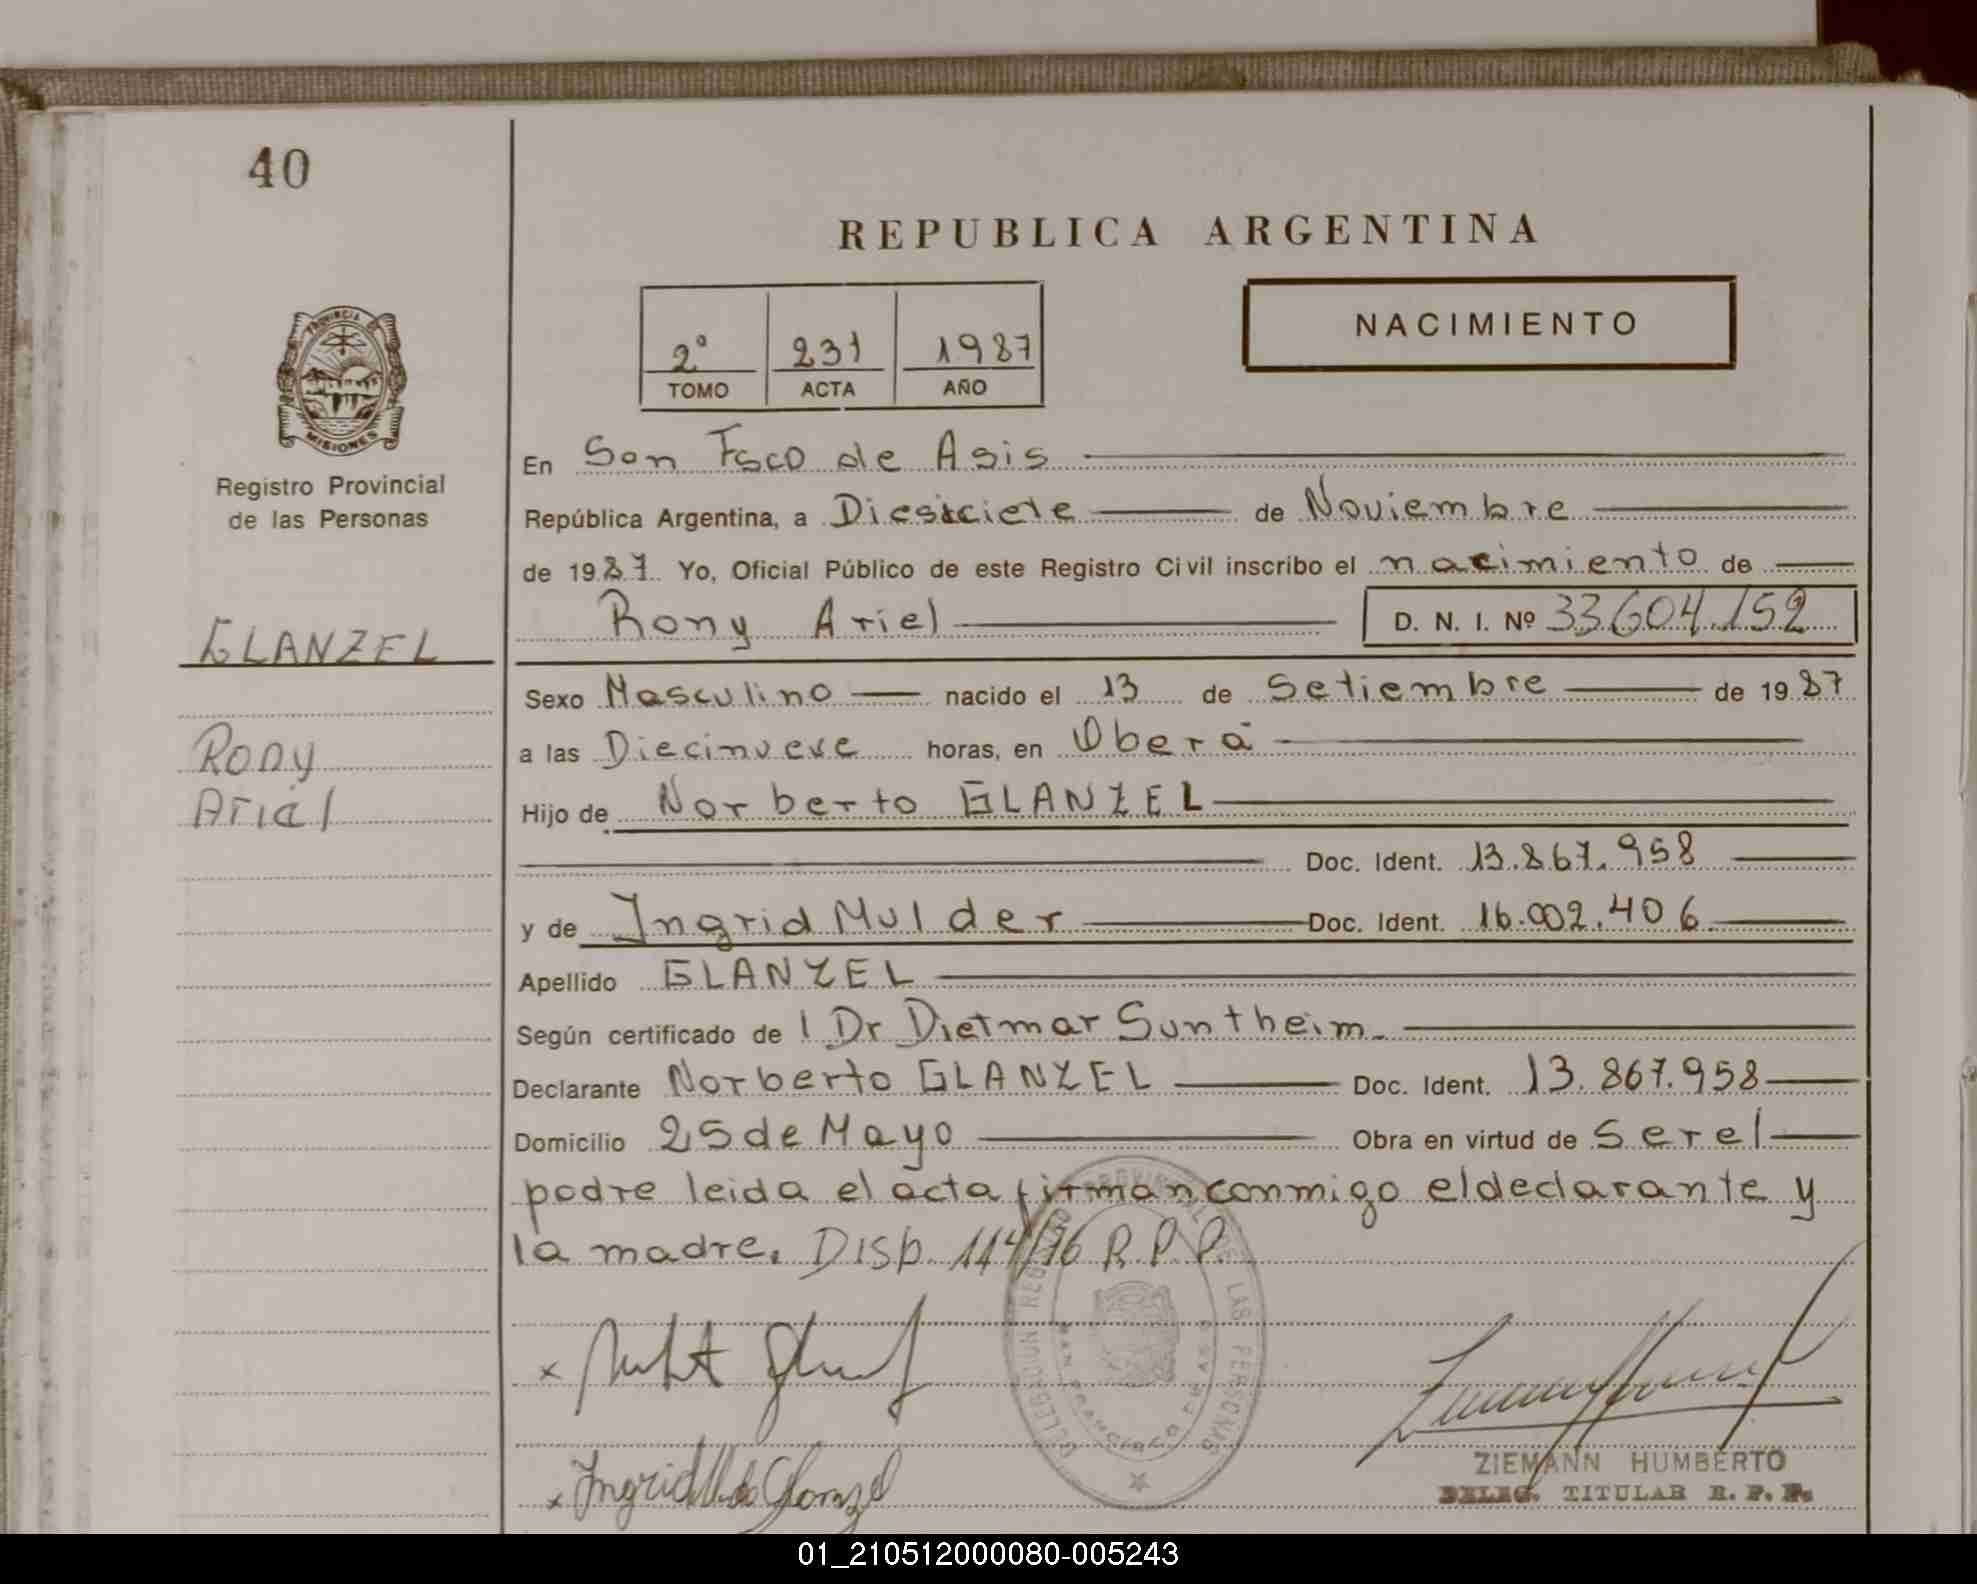 40
REPUBLICA ARGENTINA
NACIMIENTO
2° 231 1987
TOMO ACTA AÑO
PROVINCIA DE
MISIONES
Registro Provincial
de las Personas
En San Fsco de Asis
República Argentina, a Diesiciete de Noviembre
de 1987 Yo, Oficial Público de este Registro Civil inscribo el nacimiento de
Rony Ariel D. N. I. Nº 33.604.152
GLANZEL
Sexo Masculino nacido el 13 de Setiembre de 1987
Rony
a las Diecinueve horas, en Oberá
Ariel
Hijo de Norberto GLANZEL
Doc. Ident. 13.867.958
y de Ingrid Mulder Doc. Ident. 16.002.406
Apellido GLANZEL
Según certificado de l Dr Dietmar Suntheim
Declarante Norberto GLANZEL Doc. Ident. 13.867.958
Domicilio 25 de Mayo Obra en virtud de Ser el
padre leida el acta firman conmigo el declarante y
la madre. Disp. 114/76 R.P.P.
DELEGACION REGISTRO PROVINCIAL DE LAS PERSONAS
SAN FRANCISCO DE ASIS
ZIEMANN HUMBERTO
DELEG. TITULAR R. P. P.
01_210512000080-005243